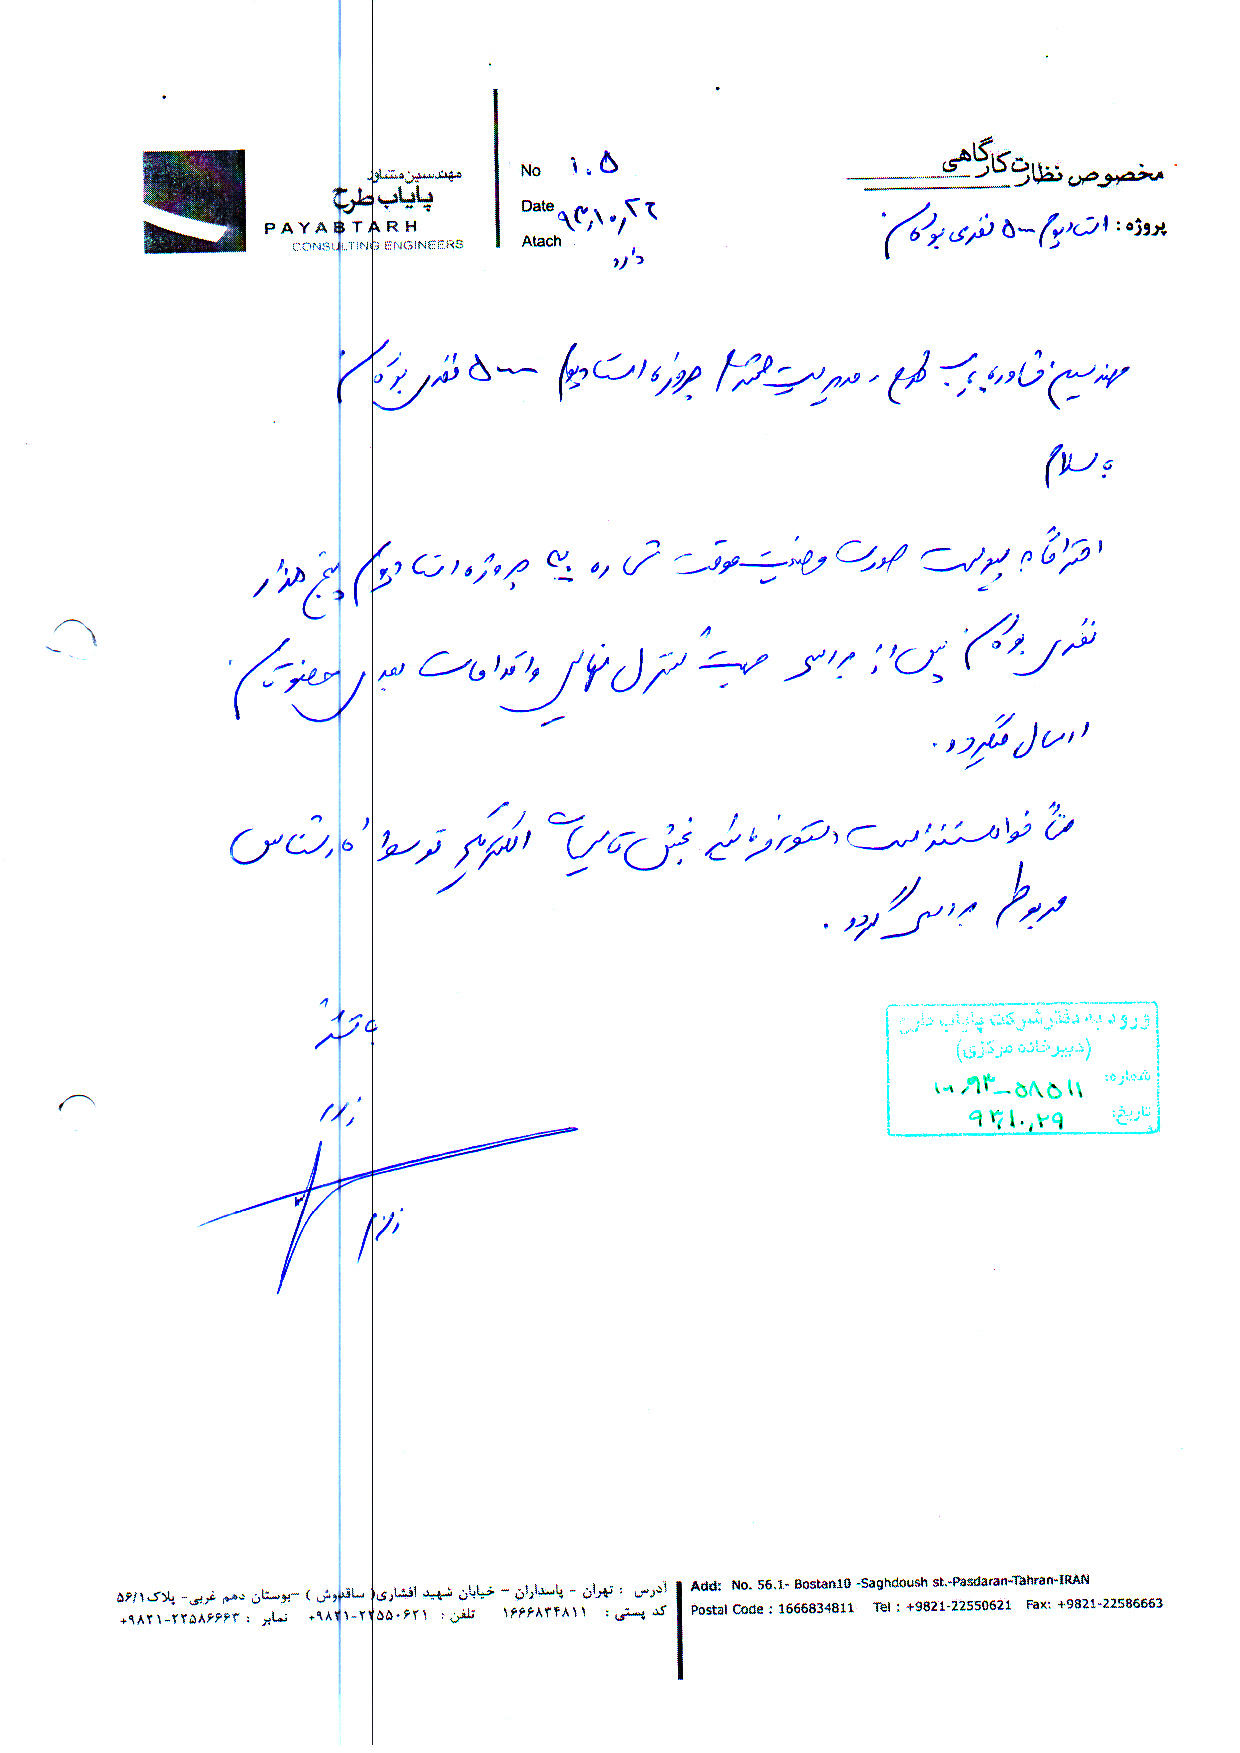 مخصوص نظارت کارگاهی
پروژه : استادیوم ۵۰۰۰ نفری بوکان
مهندسین مشاور
پایاب طرح
PAYABTARH
CONSULTING ENGINEERS
No ۱۰۵
Date ۹۳,۱۰,۲۶
Atach دارد
مهندسین مشاور پایاب طرح ، مدیریت محترم پروژه استادیوم ۵۰۰۰ نفری بوکان
با سلام
احتراماً به پیوست صورت وضعیت موقت شماره پروژه استادیوم پنج هزار
نفری بوکان پس از بررسی جهت کنترل نهایی و اقدامات بعدی حضورتان
ارسال میگردد.
ضمناً خواهشمند است دستور فرمائید بخش تاسیسات الکتریکی توسط کارشناس
مربوطه بررسی گردد.
با تشکر
ورود به دفتر شرکت پایاب طرح
(دبیرخانه مرکزی)
شماره: ۱۰۰,۹۳-۵۸۵۱۱
تاریخ: ۹۳,۱۰,۲۹
آدرس : تهران - پاسداران - خیابان شهید افشاری( ساقدوش ) -بوستان دهم غربی- پلاک ۵۶/۱
کد پستی : ۱۶۶۶۸۳۴۸۱۱ تلفن : ۲۲۵۵۰۶۲۱-۹۸۲۱+ نمابر : ۲۲۵۸۶۶۶۳-۹۸۲۱+
Add: No. 56.1- Bostan10 -Saghdoush st.-Pasdaran-Tahran-IRAN
Postal Code : 1666834811 Tel : +9821-22550621 Fax: +9821-22586663